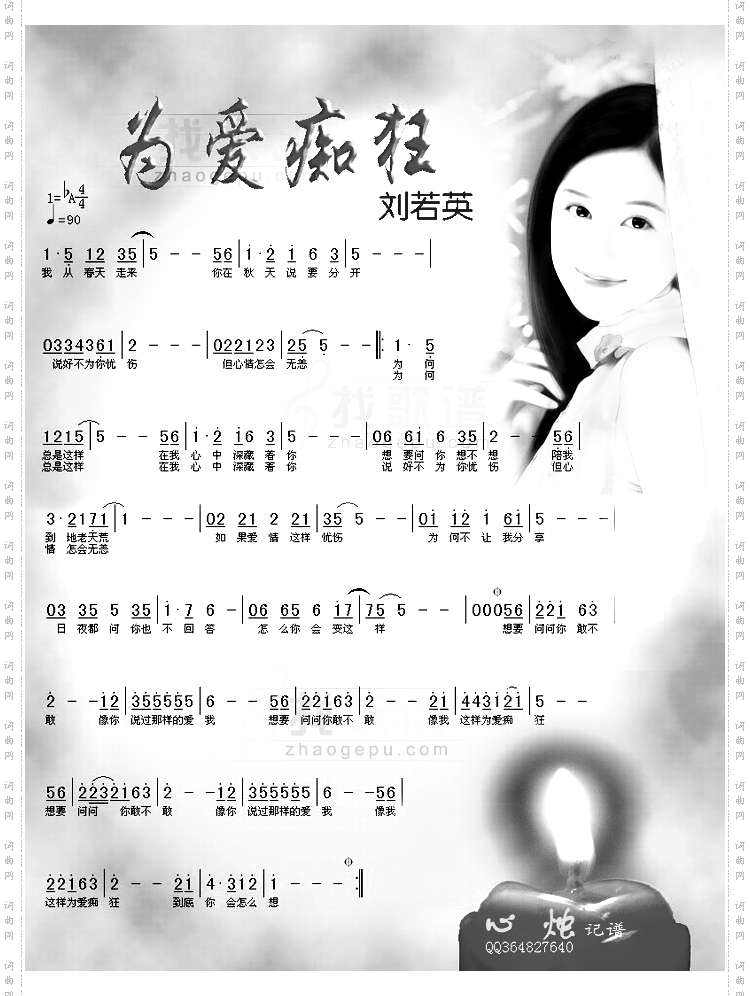 为爱痴狂
刘若英
1=♭A 4/4
♩=90
1·5 12 35 | 5 - - 56 | 1·2 1 6 3 | 5 - - - |
我 从 春天 走来 你在 秋 天 说 要 分 开
0334361 | 2 - - 022123 | 25 5 - - :| 1· 5
说好不为你忧 伤 但心情怎会 无恙 为 何
为 何
1215 | 5 - - 56 | 1·2 16 3 | 5 - - - | 06 61 6 35 | 2 - - 56 |
总是这样 在我 心 中 深藏 着 你 想 要问 你 想不 想 陪我
总是这样 在我 心 中 深藏 着 你 说 好不 为 你忧 伤 但心
3·2171 | 1 - - - | 02 21 2 21 | 35 5 - - | 01 12 1 61 | 5 - - -
到 地老天荒 如 果爱 情 这样 忧伤 为 何不 让 我分 享
情 怎会无恙
03 35 5 35 | 1·7 6 - | 06 65 6 17 | 75 5 - - | 00056 | 221 63
日 夜都 问 你也 不 回 答 怎 么你 会 变这 样 想要 问问你 敢不
2 - - 12 | 3555555 | 6 - - 56 | 22163 | 2 - - 21 | 443121 | 5 - -
敢 像你 说过那样的爱 我 想要 问问你敢不 敢 像我 这样为爱痴 狂
56 | 2232163 | 2 - - 12 | 3555555 | 6 - - 56 |
想要 问问 你敢不 敢 像你 说过那样的爱 我 像我
22163 | 2 - - 21 | 4·312 | 1 - - - :|
这样为爱痴 狂 到底 你 会怎么 想
心 烛 记谱
QQ364827640
找歌谱
zhaogepu.com